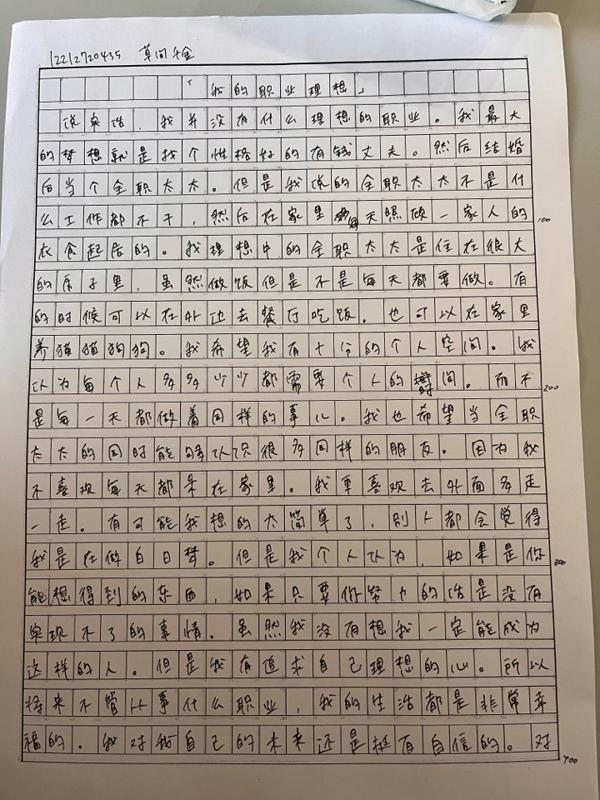 12212720435 草间千金
「我的职业理想」
说实话，我并没有什么理想的职业。我最大
的梦想就是找个性格好的有钱丈夫。然后结婚
后当个全职太太。但是我说的全职太太不是什
么工作都不干，然后在家里每天照做一家人的
100
衣食起居的。我理想中的全职太太是住在很大
的房子里，虽然做饭但是不是每天都要做。有
的时候可以在外边去餐厅吃饭，也可以在家里
养猫猫狗狗。我希望我有十分的个人空间。我
认为每个人多多少少都需要个人的时间。而不
200
是每一天都做着同样的事儿。我也希望当全职
太太的同时能够认识很多同样的朋友。因为我
不喜欢每天都呆在家里。我更喜欢去外面多走
一走。有可能我想的太简单了，别人都会觉得
我是在做白日梦。但是我个人认为，如果是你
300
能想得到的东西，如果只要你努力的话是没有
实现不了的事情。虽然我没有想我一定能成为
这样的人。但是我有追求自己理想的心。所以
将来不管从事什么职业，我的生活都是非常幸
福的。我对我自己的未来还是挺有自信的。对
400